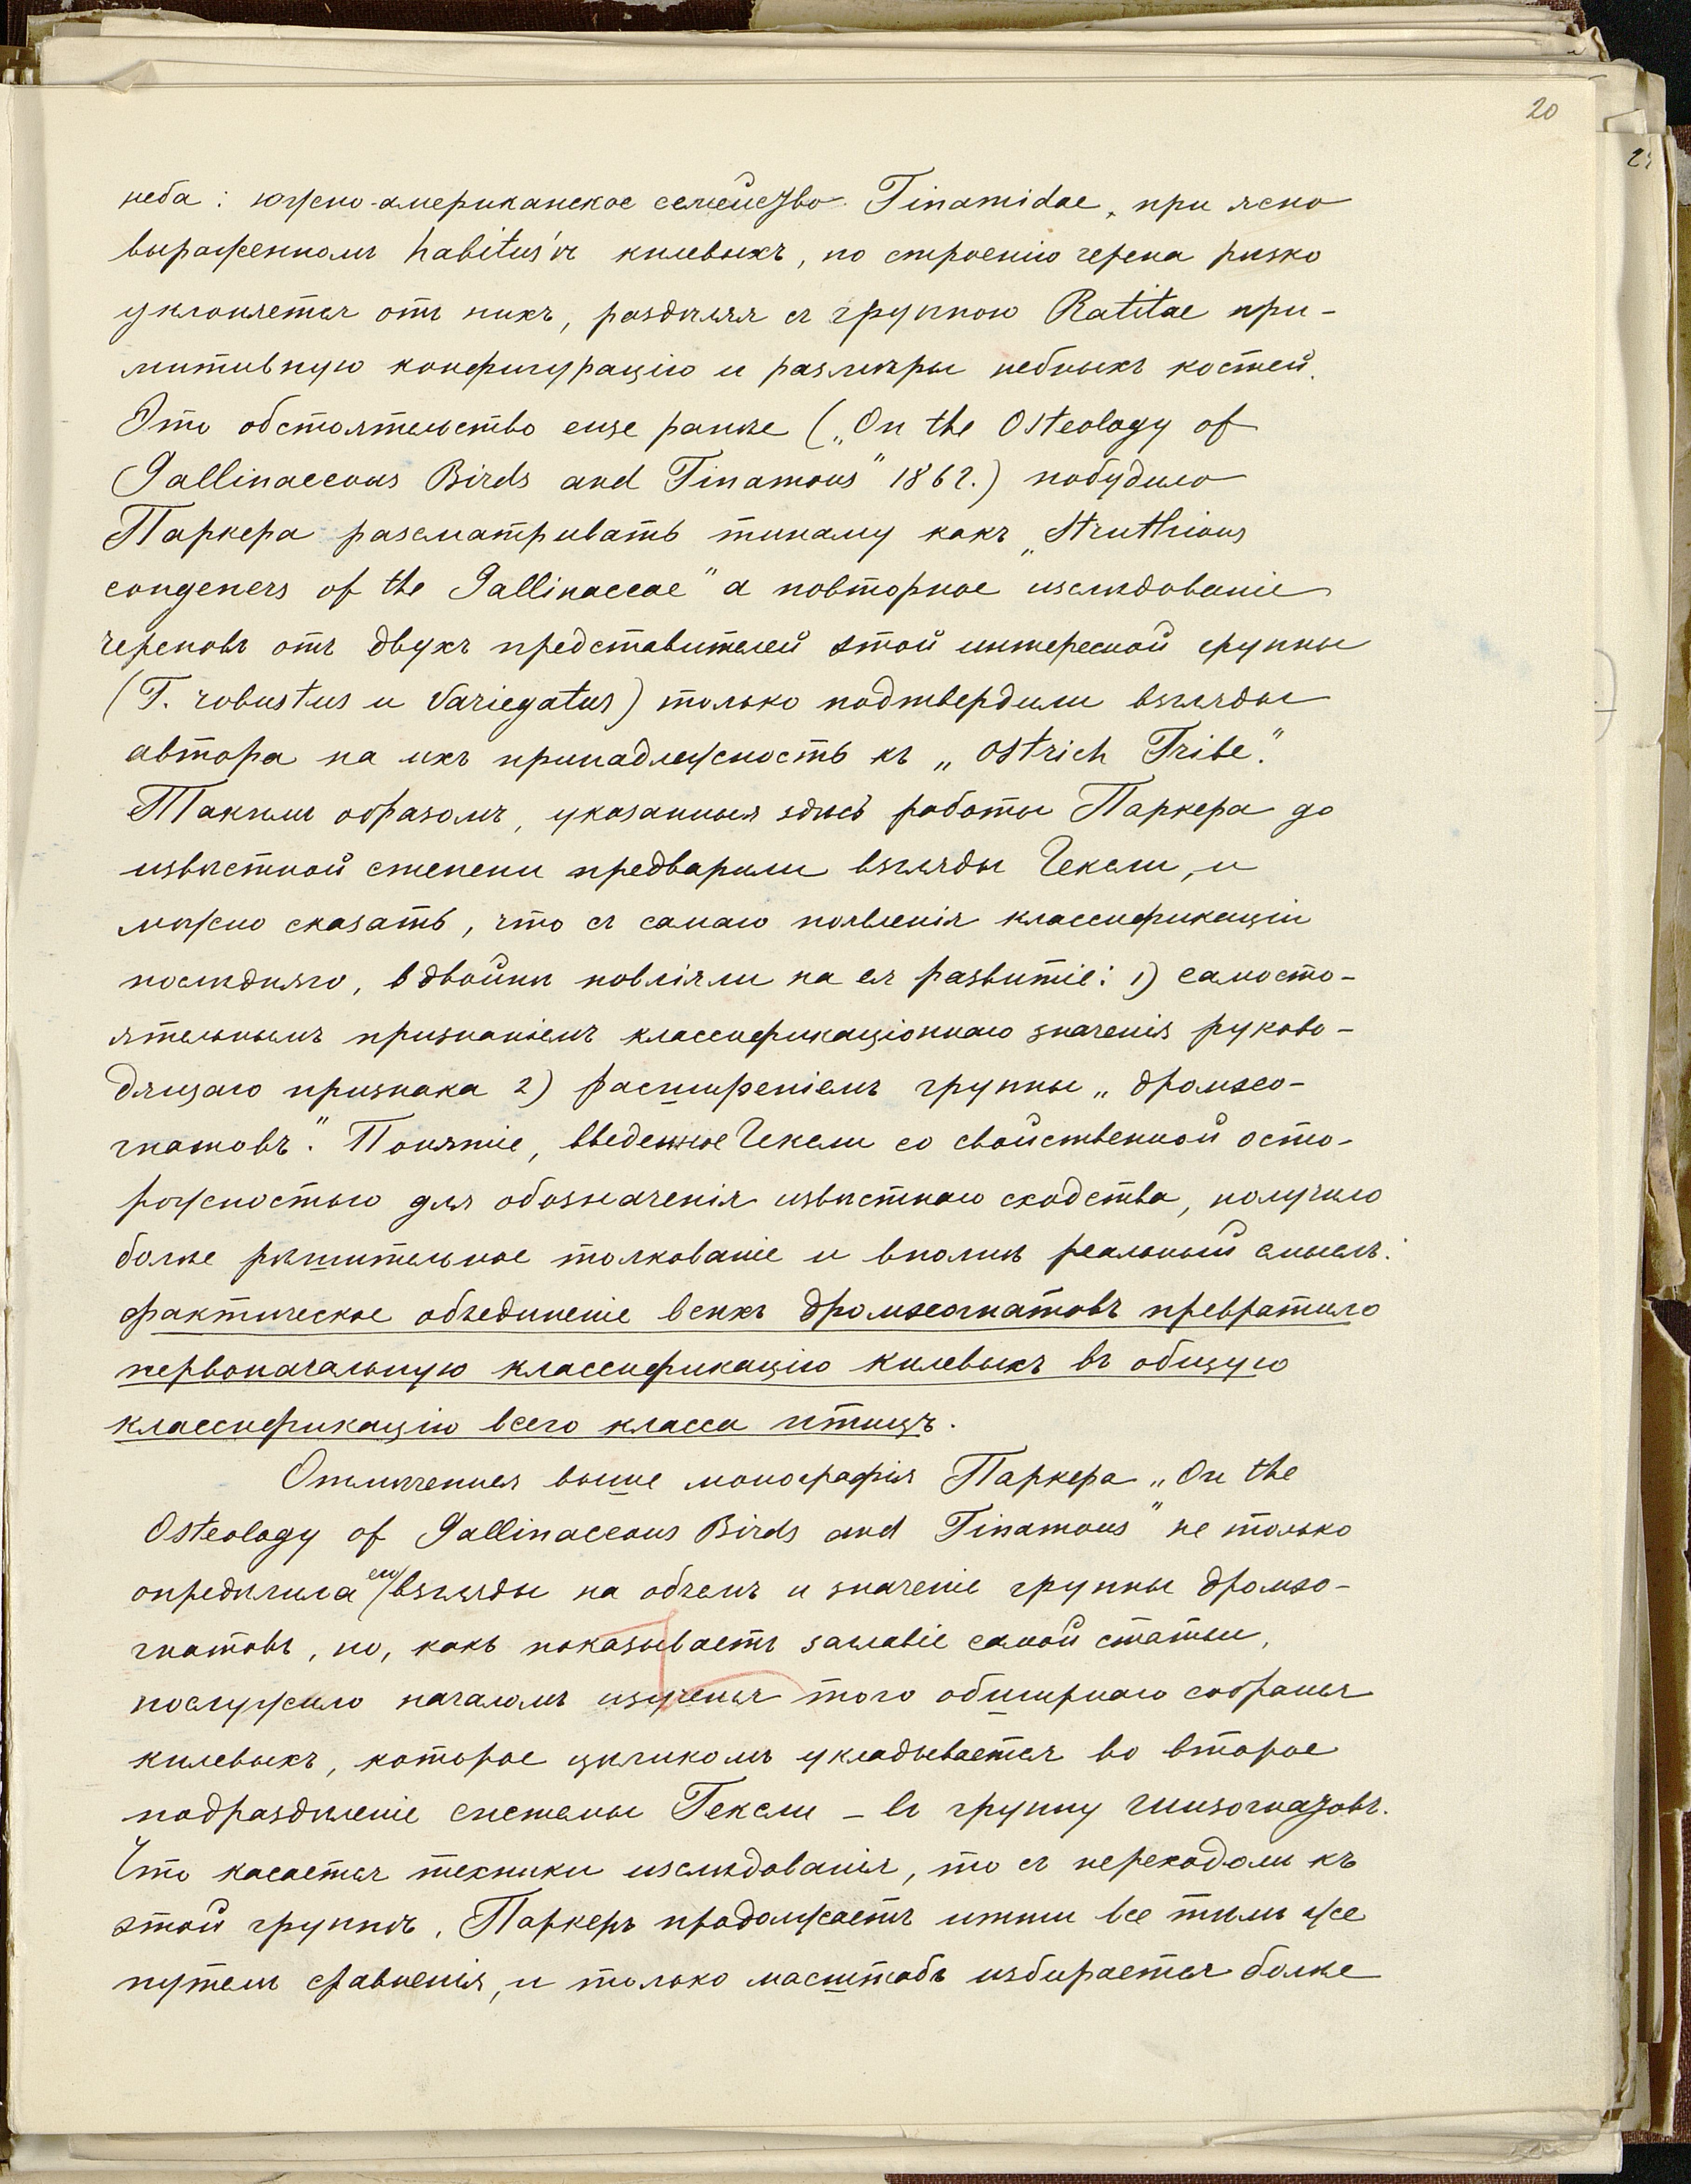 20
неба: южно-американское семейство Tinamidae, при ясно
выраженномъ habitus'ѣ килевыхъ, по строенію черепа рѣзко
уклоняется отъ нихъ, раздѣляя съ группою Ratitae при-
митивную конфигурацію и размѣры небныхъ костей.
Это обстоятельство еще ранѣе („On the Osteology of
Gallinaceous Birds and Tinamous" 1862.) побудило
Паркера разсматривать тинаму какъ „Struthious
congeners of the Gallinaceae" а повторное изслѣдованіе
череповъ отъ двухъ представителей этой интересной группы
(T. robustus и variegatus) только подтвердили взгляды
автора на ихъ принадлежность къ „Ostrich Tribe".
Такимъ образомъ, указанныя здѣсь работы Паркера до
извѣстной степени предварили взгляды Гексли, и
можно сказать, что съ самаго появленія классификаціи
послѣдняго, вдвойнѣ повліяли на ея развитіе: 1) самосто-
ятельнымъ признаніемъ классификаціоннаго значенія руково-
дящаго признака 2) расширеніемъ группы „дромэо-
гнатовъ". Понятіе, введенное Гексли со свойственной осто-
рожностью для обозначенія извѣстнаго сходства, получило
болѣе рѣшительное толкованіе и вполнѣ реальный смыслъ:
фактическое объединеніе всѣхъ дромэогнатовъ превратило
первоначальную классификацію килевыхъ въ общую
классификацію всего класса птицъ.
Отмѣченная выше монографія Паркера „On the
Osteology of Gallinaceous Birds and Tinamous" не только
опредѣлила его взгляды на объемъ и значеніе группы дромэо-
гнатовъ, но, какъ показываетъ заглавіе самой статьи,
послужило началомъ изученья того обширнаго собранья
килевыхъ, которое цѣликомъ укладывается во второе
подраздѣленіе системы Гексли – въ группу шизогнатовъ.
Что касается техники изслѣдованія, то съ переходомъ къ
этой группѣ, Паркеръ продолжаетъ итти все тѣмъ же
путемъ сравненія, и только масштабъ избирается болѣе